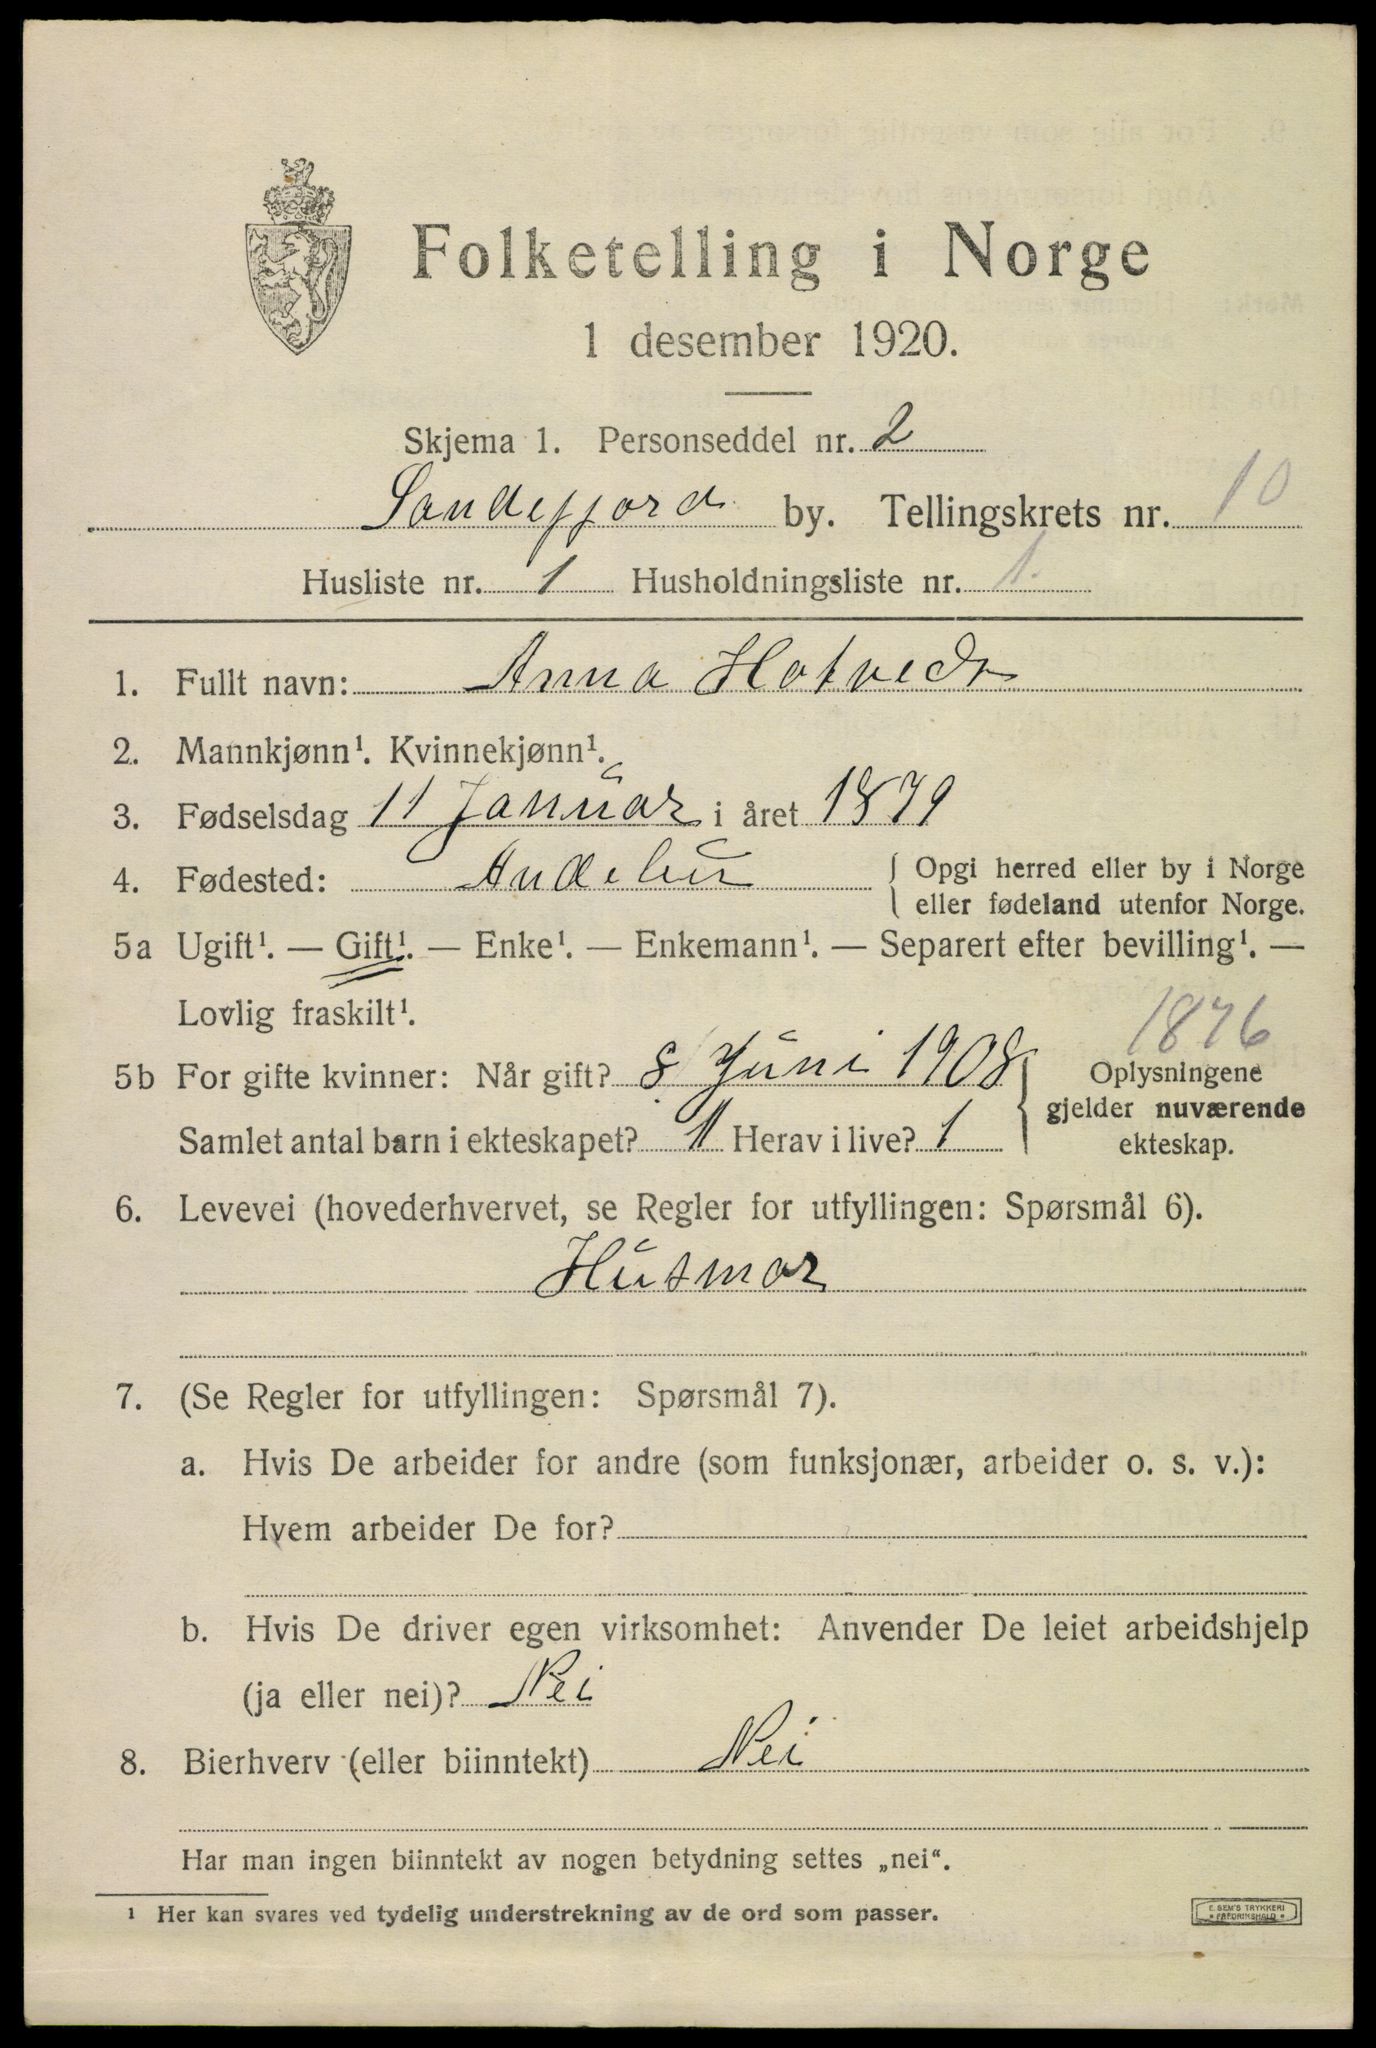 Folketelling i Norge
1 desember 1920.
Skjema 1. Personseddel nr. 2
Sandefjord by. Tellingskrets nr. 10
Husliste nr. 1 Husholdningsliste nr. 1.
1. Fullt navn: Anna Hotvedt
2. Mannkjønn¹. Kvinnekjønn¹.
3. Fødselsdag 11 Januar i året 1879
4. Fødested: Andebu { Opgi herred eller by i Norge
eller fødeland utenfor Norge.
5a Ugift¹. — Gift¹. — Enke¹. — Enkemann¹. — Separert efter bevilling¹. —
Lovlig fraskilt¹.
1876
5b For gifte kvinner: Når gift? 8 Juni 1908 { Oplysningene
gjelder nuværende
Samlet antal barn i ekteskapet? 1 Herav i live? 1
ekteskap.
6. Levevei (hovederhvervet, se Regler for utfyllingen: Spørsmål 6).
Husmor
7. (Se Regler for utfyllingen: Spørsmål 7).
a. Hvis De arbeider for andre (som funksjonær, arbeider o. s. v.):
Hvem arbeider De for?
b. Hvis De driver egen virksomhet: Anvender De leiet arbeidshjelp
(ja eller nei)? Nei
8. Bierhverv (eller biinntekt) Nei
Har man ingen biinntekt av nogen betydning settes „nei“.
¹ Her kan svares ved tydelig understrekning av de ord som passer.
E. SEM'S TRYKKERI
FREDRIKSHALD